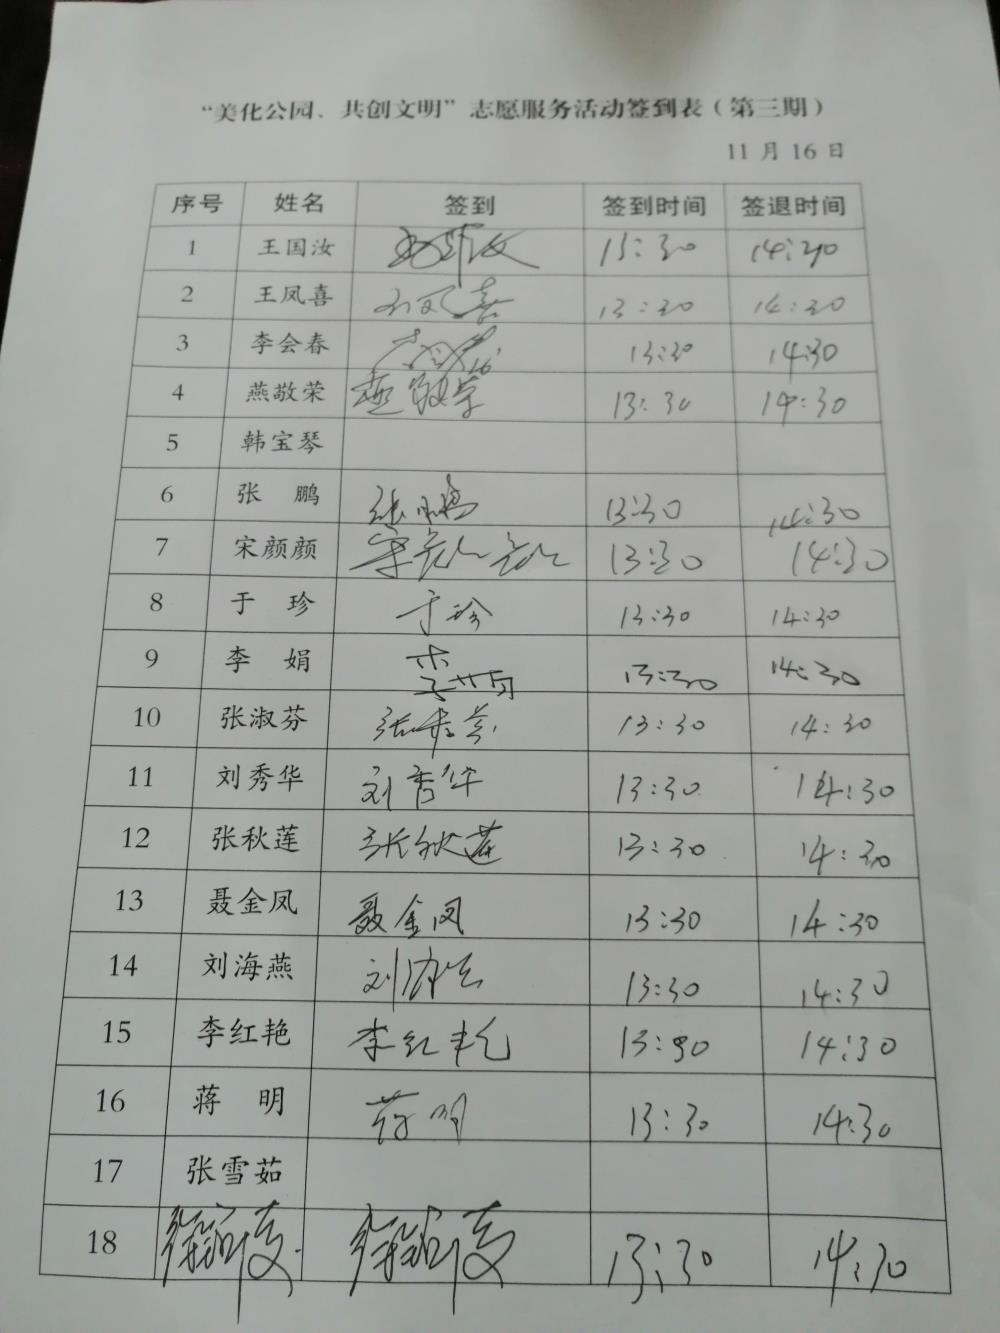 “美化公园、共创文明”志愿服务活动签到表（第三期）
11 月 16 日
序号 姓名 签到 签到时间 签退时间
1 王国汝 13:30 14:20
2 王凤喜 13:30 14:30
3 李会春 13:30 14:30
4 燕敬荣 燕敬荣 13:30 14:30
5 韩宝琴
6 张 鹏 张鹏 13:30 14:30
7 宋颜颜 宋颜颜 13:30 14:30
8 于 珍 于珍 13:30 14:30
9 李 娟 李娟 13:30 14:30
10 张淑芬 张淑芬 13:30 14:30
11 刘秀华 刘秀华 13:30 14:30
12 张秋莲 张秋莲 13:30 14:30
13 聂金凤 聂金凤 13:30 14:30
14 刘海燕 刘海燕 13:30 14:30
15 李红艳 李红艳 13:30 14:30
16 蒋 明 蒋明 13:30 14:30
17 张雪茹
18 13:30 14:30